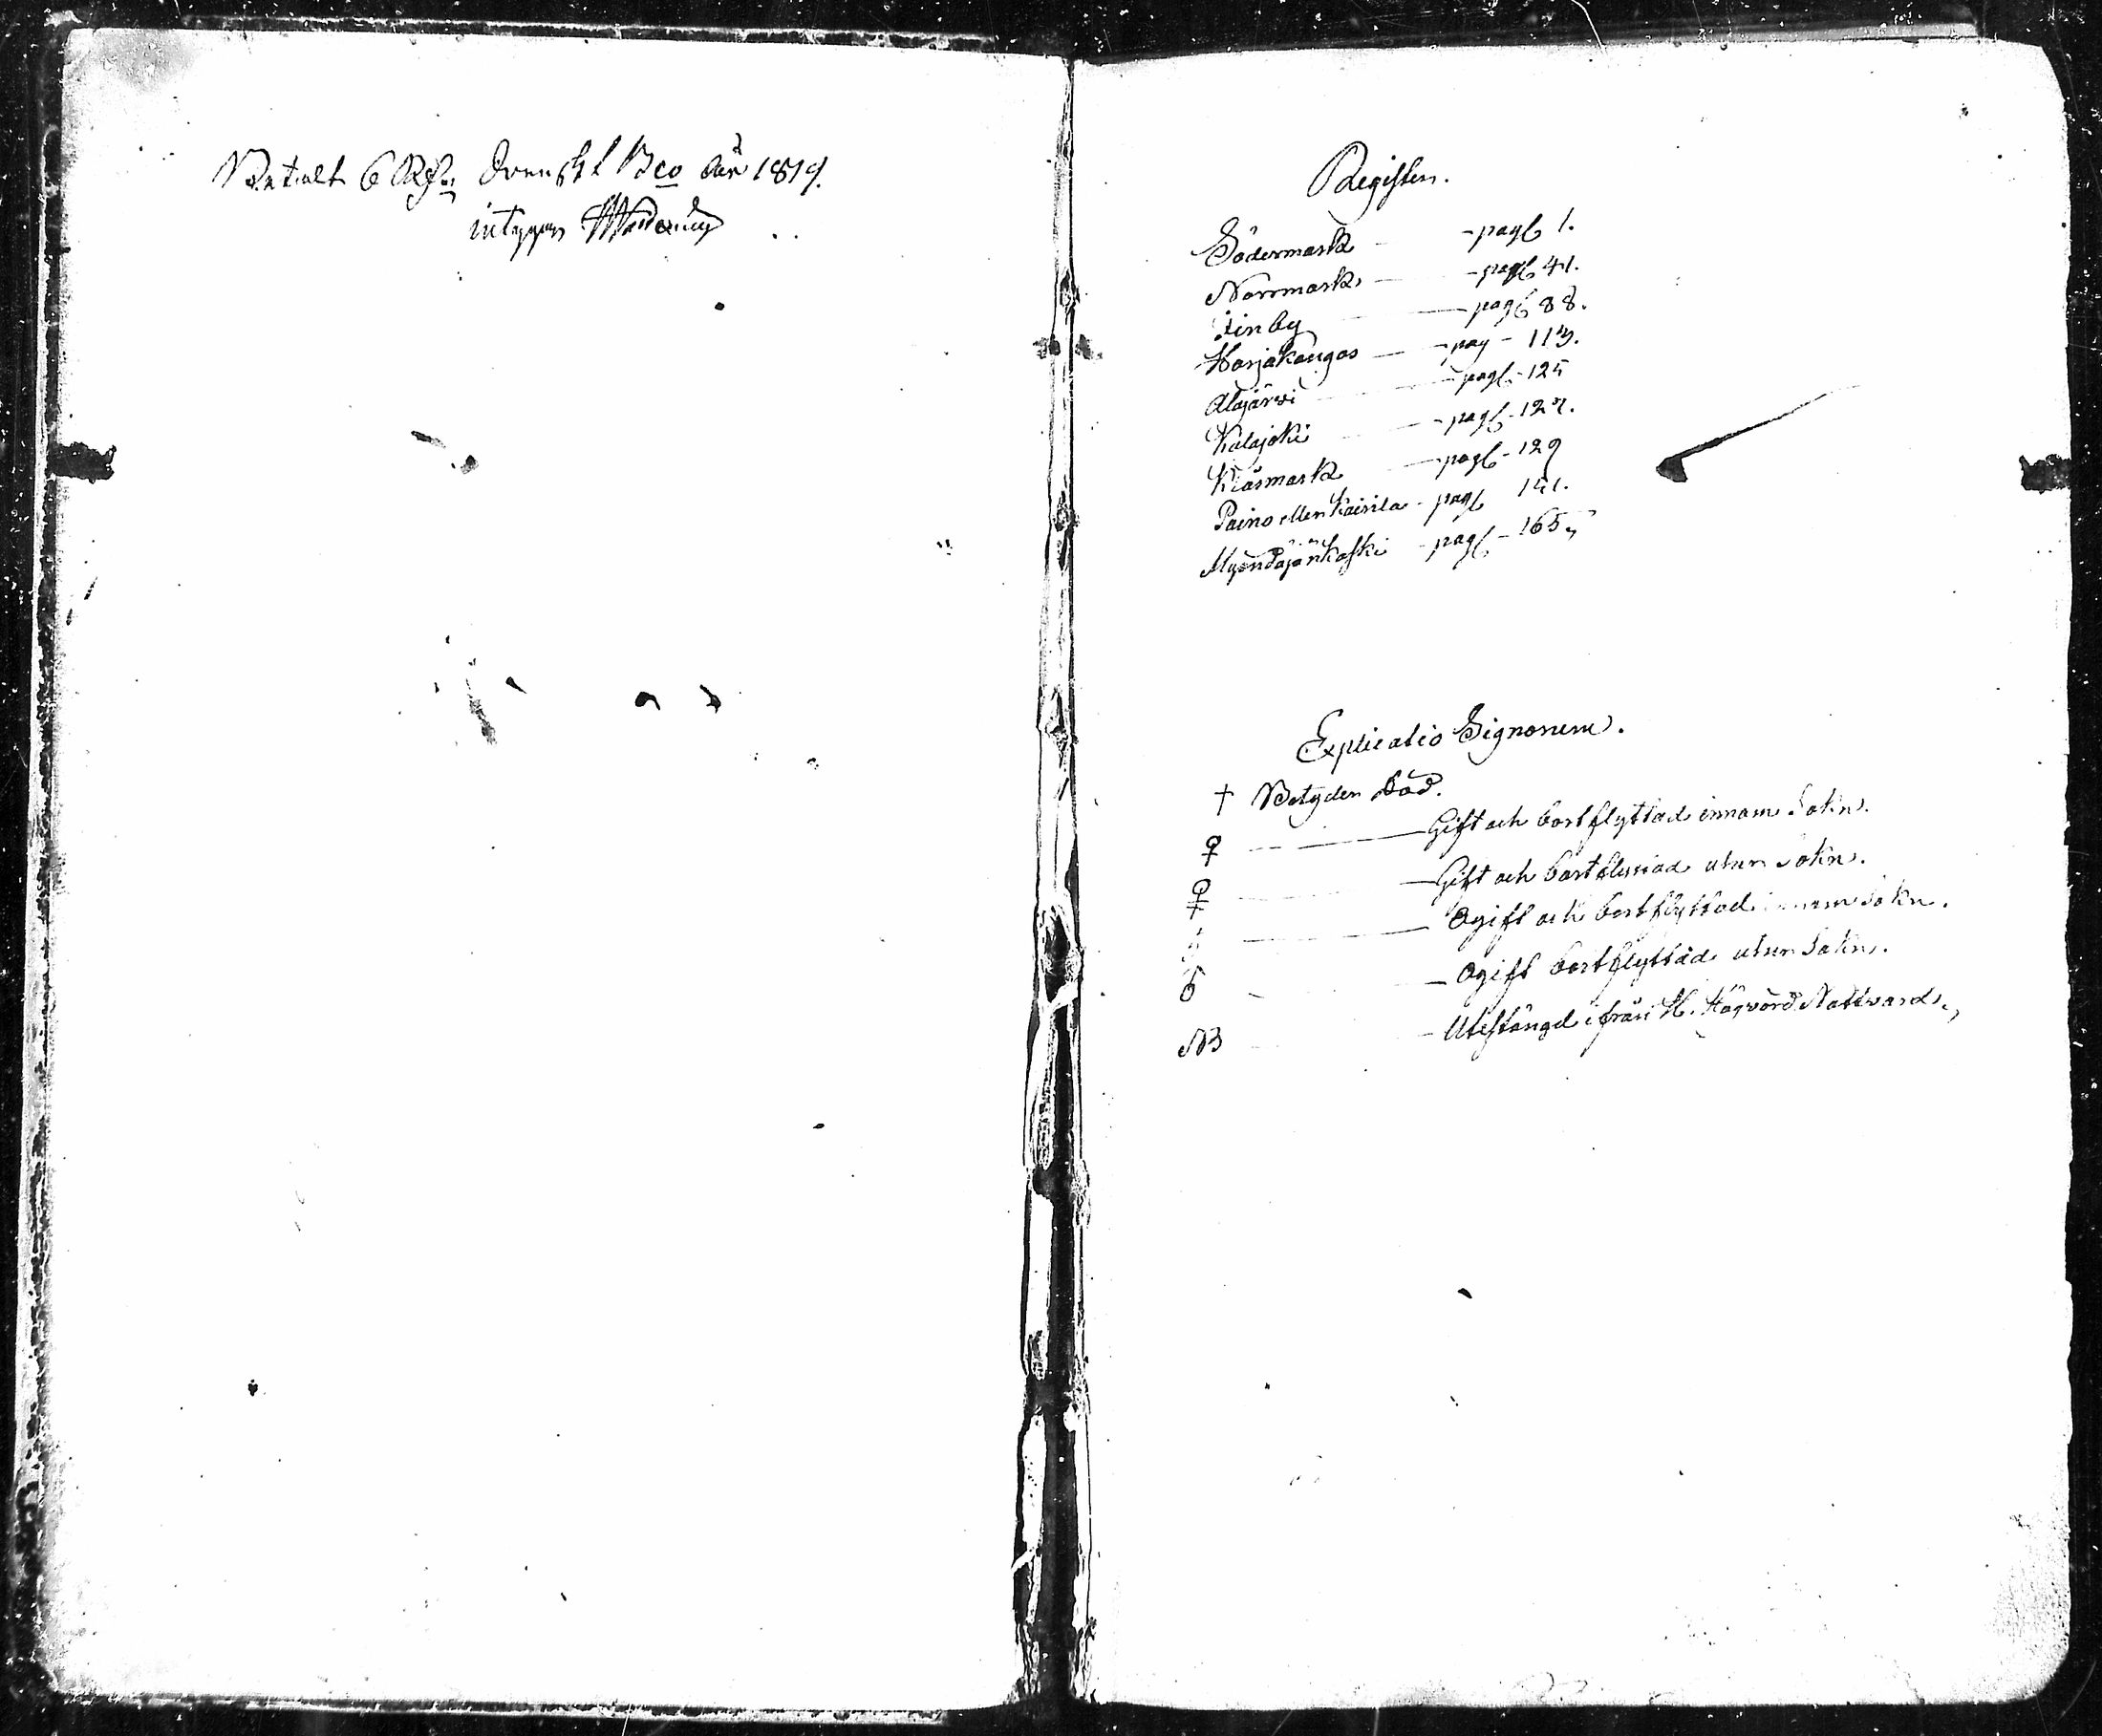 Betalt 6 Rd. Svenskt Bco år 1819.
intygar
Register.
Södermark - pag 1.
Norrmark - pag 41.
Finby - pag 88.
Harjakangas - pag - 113.
Alajärwi - pag - 125
Kalajoki - pag - 127.
Kiäsmark - pag - 129
Paino eller Kairila - pag 151.
- pag - 165
Explicatio Signorum.
† Betyder Död.
♀ Gift och bortflyttad innom Sokn.
♀ Gift och bortflyttad utur Sokn.
Ogift och bortflyttad innom Sokn.
Ogift bortflyttad utur Sokn.
NB - Utestängd ifrån H. Högvörd. Nattvard.